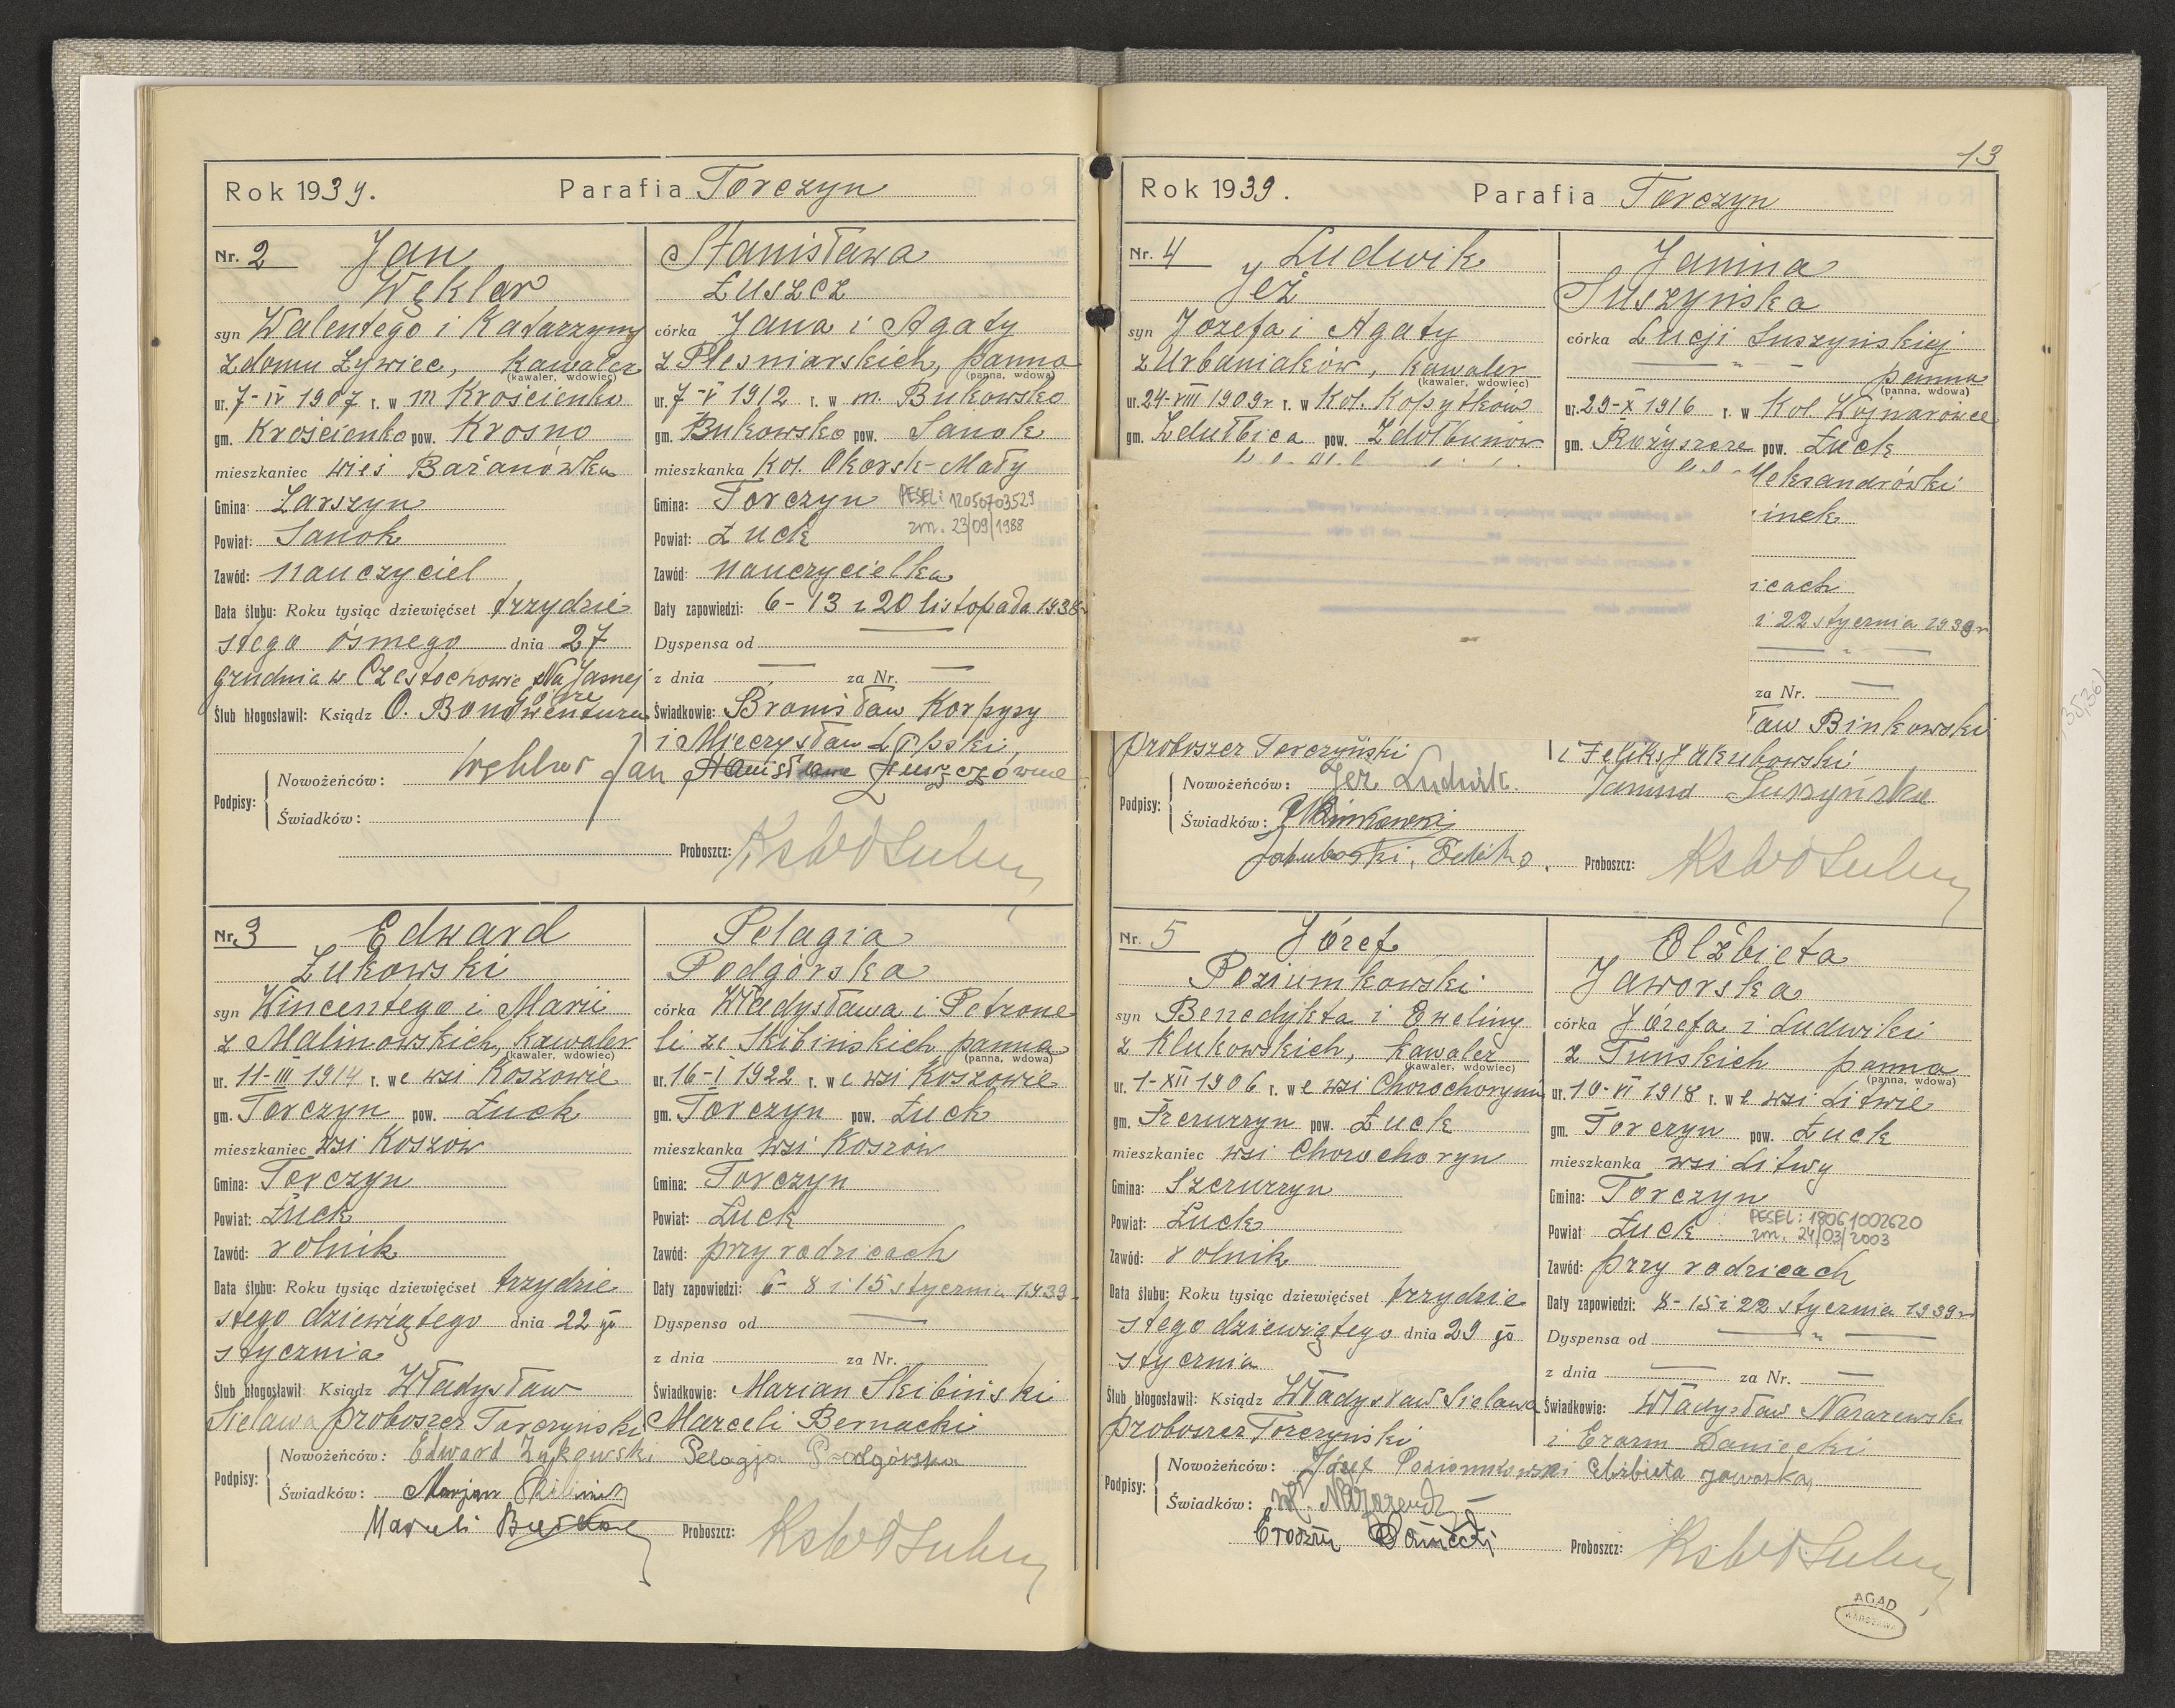 Rok 1939. Parafia Torczyn
Nr. 2 Jan
Węklar
syn Walentego i Katarzyny
z domu Żywiec, kawaler
(kawaler, wdowiec)
ur. 7-IV 1907 r. w m Krościenko
gm. Krościenko pow. Krosno
mieszkaniec wieś Bażanówka
Gmina: Zarszyn
Powiat: Sanok
Zawód: nauczyciel
Data ślubu: Roku tysiąc dziewięćset trzydzie
stego ósmego dnia 27
grudnia w Częstochowie Na Jasnej
Górze
Ślub błogosławił: Ksiądz O. Bonawentura
Stanisława
Łuszcz
córka Jana i Agaty
z Pleśniarskich, panna
(panna, wdowa)
ur. 7-V 1912 r. w m. Bukowsko
gm. Bukowsko pow. Sanok
mieszkanka Kol. Okorsk-Mały
Gmina: Torczyn PESEL: 12050703529
zm. 23/09/1988
Powiat: Łuck
Zawód: nauczycielka
Daty zapowiedzi: 6-13 i 20 listopada 1938r
Dyspensa od
z dnia — za Nr. —
Świadkowie: Bronisław Korpysy
i Mieczysław
Podpisy:
Nowożeńców: Węklar Jan Stanisława Łuszczówna
Świadków:
Proboszcz:
Nr. 3 Edward
Żukowski
syn Wincentego i Marii
z Malinowskich, kawaler
(kawaler, wdowiec)
ur. 11-III 1914 r. we wsi Koszowie
gm. Torczyn pow. Łuck
mieszkaniec wsi Koszów
Gmina: Torczyn
Powiat: Łuck
Zawód: rolnik
Data ślubu: Roku tysiąc dziewięćset trzydzie
stego dziewiątego dnia 22 go
stycznia
Ślub błogosławił: Ksiądz Władysław
Sielawa proboszcz Torczyński
Pelagia
Podgórska
córka Władysława i Petrone
li ze Skibińskich panna
(panna, wdowa)
ur. 16-I 1922 r. we wsi Koszowie
gm. Torczyn pow. Łuck
mieszkanka wsi Koszów
Gmina: Torczyn
Powiat: Łuck
Zawód: przy rodzicach
Daty zapowiedzi: 6- 8 i 15 stycznia 1939
Dyspensa od —
z dnia za Nr.
Świadkowie: Marian Skibiński
Marceli Bernacki
Podpisy:
Nowożeńców: Edward Żukowski Pelagja Podgórska
Świadków: Marjan
Proboszcz:
13
Rok 1939. Parafia Torczyn
Nr. 4 Ludwik
Jeż
syn Józefa i Agaty
z Urbaniaków, kawaler
(kawaler, wdowiec)
ur. 24-VIII 1909r r. w Kol. Kopytków
gm. Zdułbica pow. Zdołbunów
proboszcz Torczyński
Janina
Suszyńska
córka Lucji Suszyńskiej
panna
(panna, wdowa)
ur. 29-X 1916 r. w Kol. Wojnarowce
gm. Rożyszcze pow. Łuck
leksandrówki
inek
icach
i 22 stycznia 1939r
za Nr. —
ław Binkowski
i Feliks Jakubowski
Podpisy:
Nowożeńców: Jeż Ludwik. Janina Suszyńska
Świadków: Binkowski
Jakubowski, Feliks. Proboszcz:
Nr. 5 Józef
Poziumkowski
syn Benedykta i Eweliny
z Klukowskich, kawaler
(kawaler, wdowiec)
ur. 1-XII 1906 r. we wsi Chorochoryniu
gm. Szczurzyn pow. Łuck
mieszkaniec wsi Chorochoryn
Gmina: Szczurzyn
Powiat: Łuck
Zawód: rolnik
Data ślubu: Roku tysiąc dziewięćset trzydzie
stego dziewiątego dnia 29 go
stycznia
Ślub błogosławił: Ksiądz Władysław Sielawa
proboszcz Torczyński
Elżbieta
Jaworska
córka Józefa i Ludwiki
z Tuńskich panna
(panna, wdowa)
ur. 10-VI 1918 r. we wsi Litwie
gm. Torczyn pow. Łuck
mieszkanka wsi Litwy
Gmina: Torczyn
Powiat Łuck PESEL: 18061002620
zm. 24/03/2003
Zawód: przy rodzicach
Daty zapowiedzi: 8-15 i 22 stycznia 1939r
Dyspensa od — „ —
z dnia — za Nr. —
Świadkowie: Władysław Nazarewski
i Erazm Daniecki
Podpisy:
Nowożeńców: Józef Poziomkowski Elżbieta Jaworska
Świadków: Wł.
Erazm Daniecki Proboszcz:
AGAD
WARSZAWA